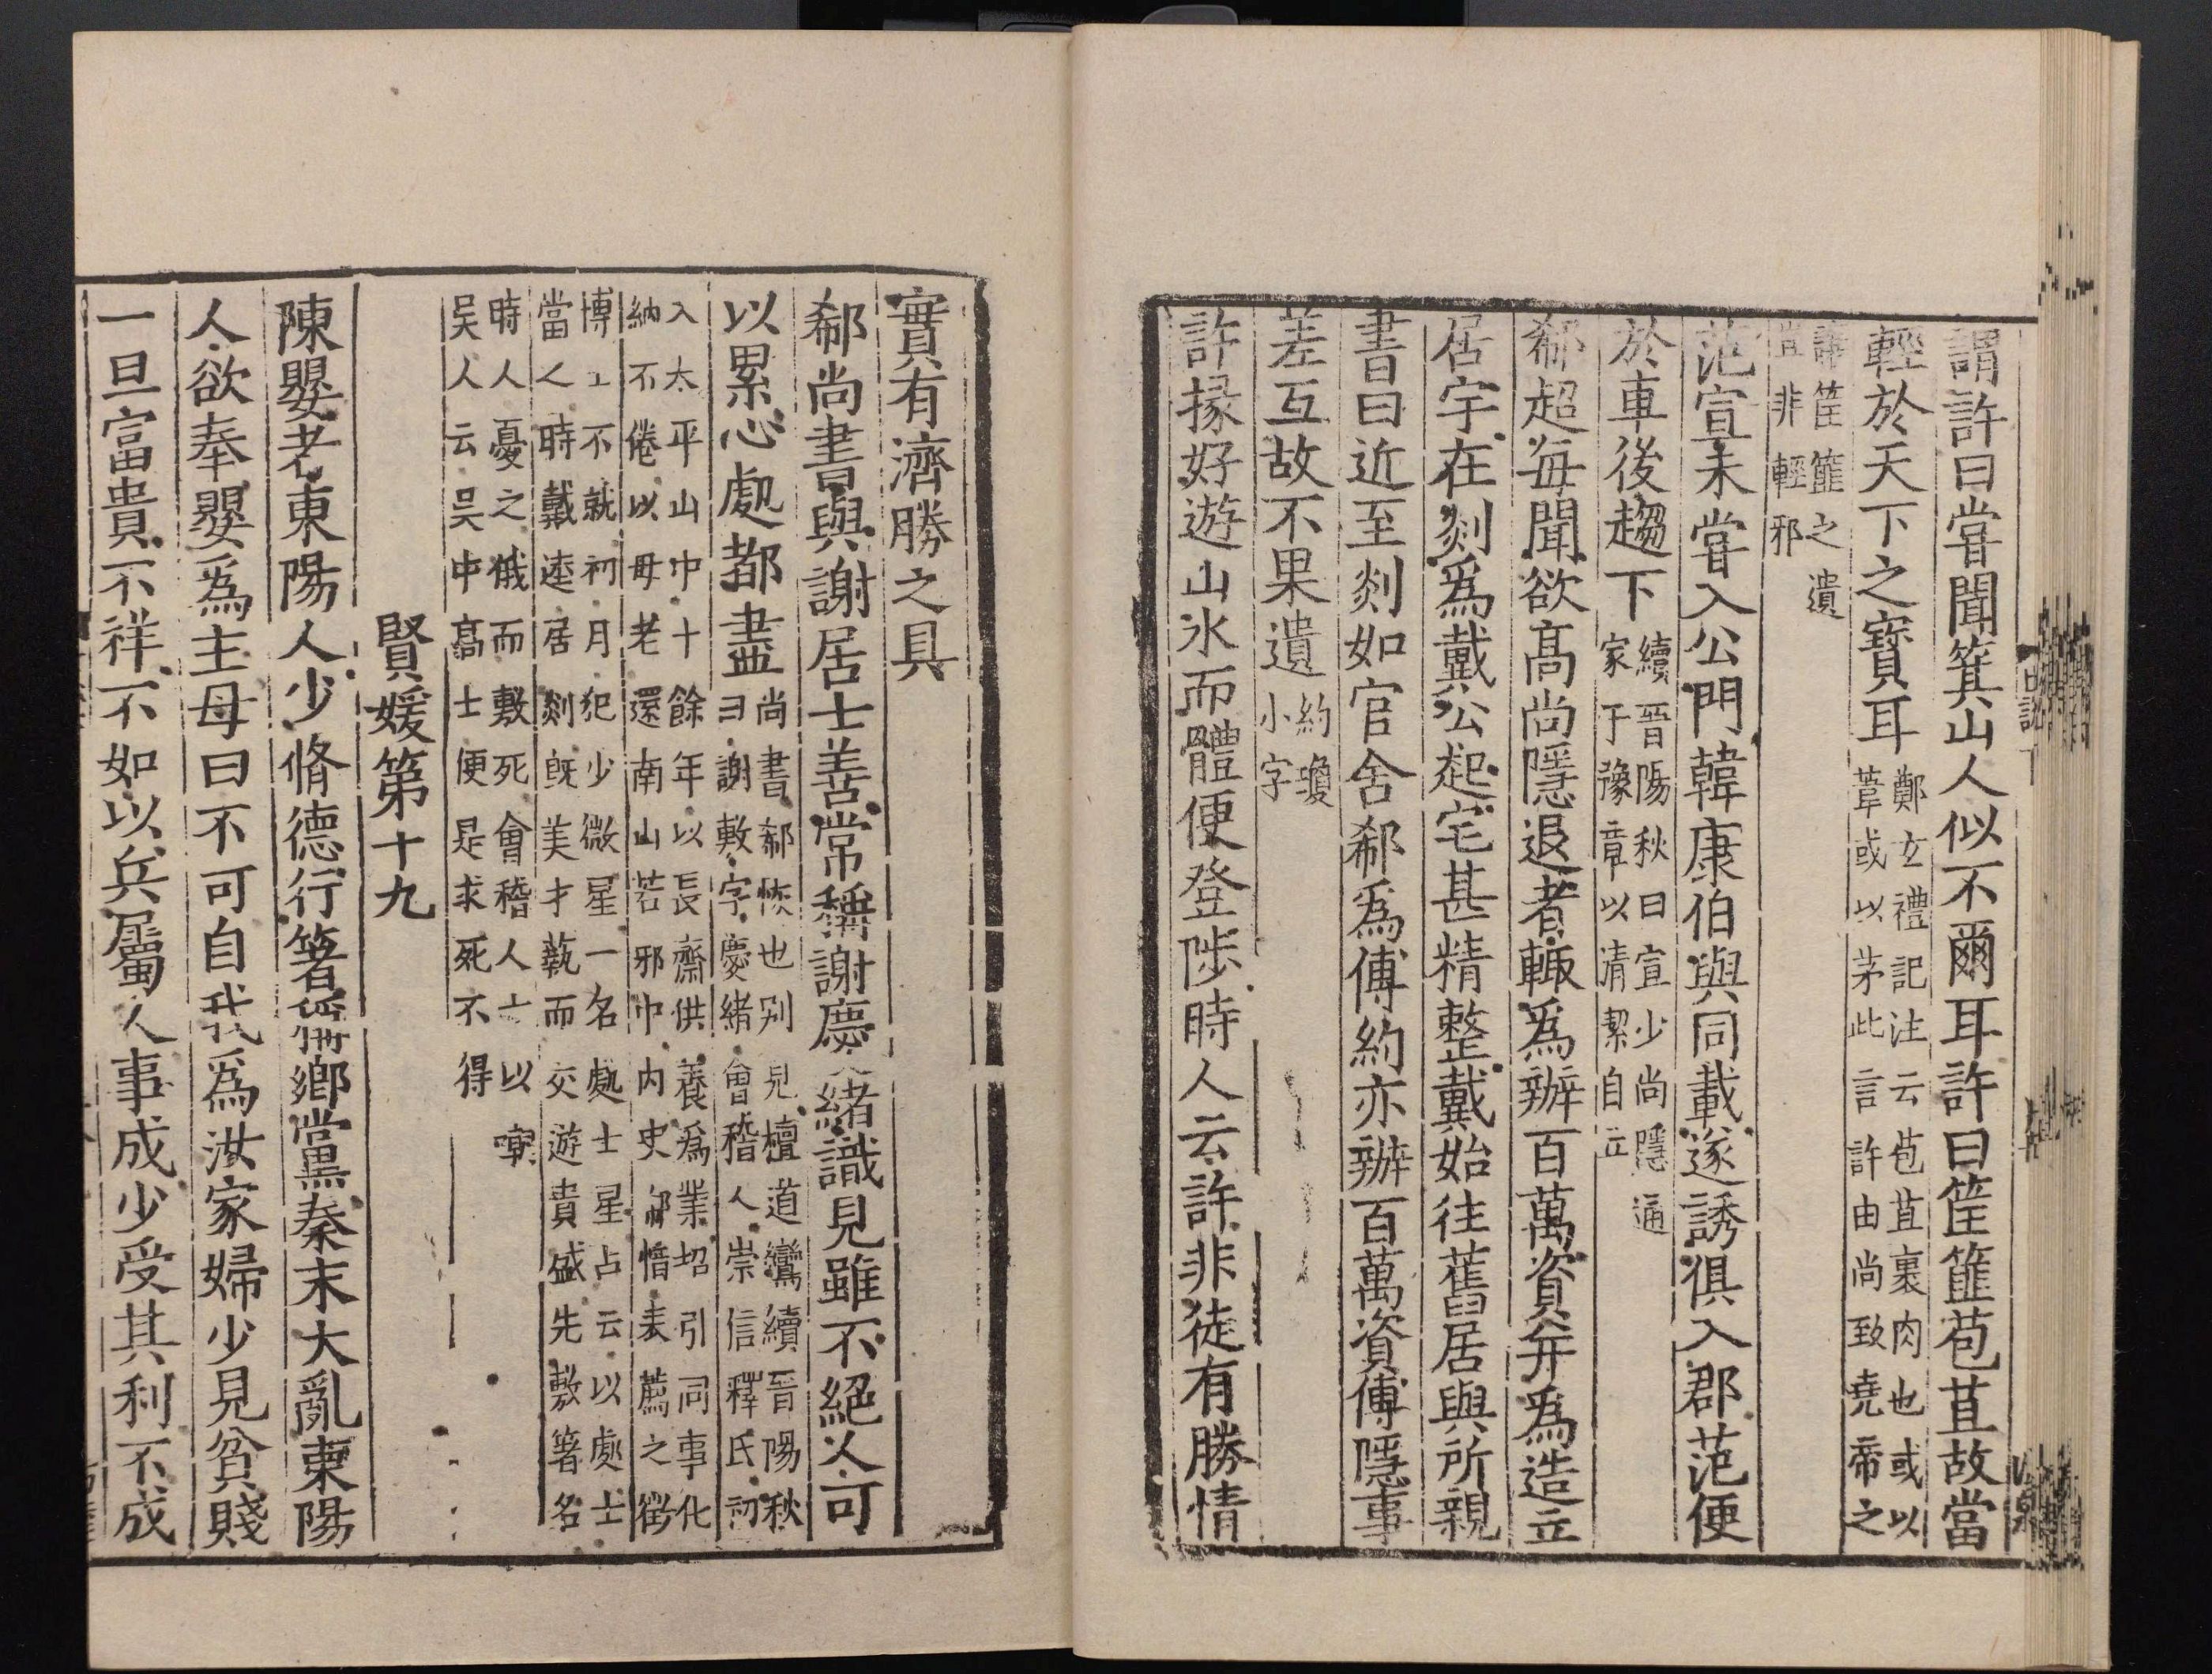 謂許曰嘗聞箕山人似不爾耳許曰筐篚苞苴故當
輕於天下之寶耳
鄭玄禮記注云苞苴裹肉也或以
葦或以茅此言許由尚致堯帝之
讓筐篚之遺
豈非輕邪
范宣未嘗入公門韓康伯與同載遂誘俱入郡范便
於車後趨下
續晉陽秋曰宣少尚隱遁
家于豫章以清潔自立
郗超每聞欲高尚隱退者輒為辦百萬資并為造立
居宇在剡為戴公起宅甚精整戴始往舊居與所親
書曰近至剡如官舍郗為傅約亦辦百萬資傅隱事
差互故不果遺
約瓊
小字
許掾好遊山水而體便登陟時人云許非徒有勝情
實有濟勝之具
郗尚書與謝居士善常稱謝慶緒識見雖不絕人可
以累心處都盡
尚書郗恢也別見檀道鸞續晉陽秋
曰謝敷字慶緒會稽人崇信釋氏初
入太平山中十餘年以長齋供養為業招引同事化
納不倦以母老還南山若邪中內史郗愔表薦之徵
博士不就初月犯少微星一名處士星占云以處士
當之時戴逵居剡既美才藝而交遊貴盛先敷著名
時人憂之俄而敷死會稽人士以嘲
吳人云吳中高士便是求死不得
賢媛第十九
陳嬰者東陽人少脩德行著稱鄉黨秦末大亂東陽
人欲奉嬰為主母曰不可自我為汝家婦少見貧賤
一旦富貴不祥不如以兵屬人事成少受其利不成